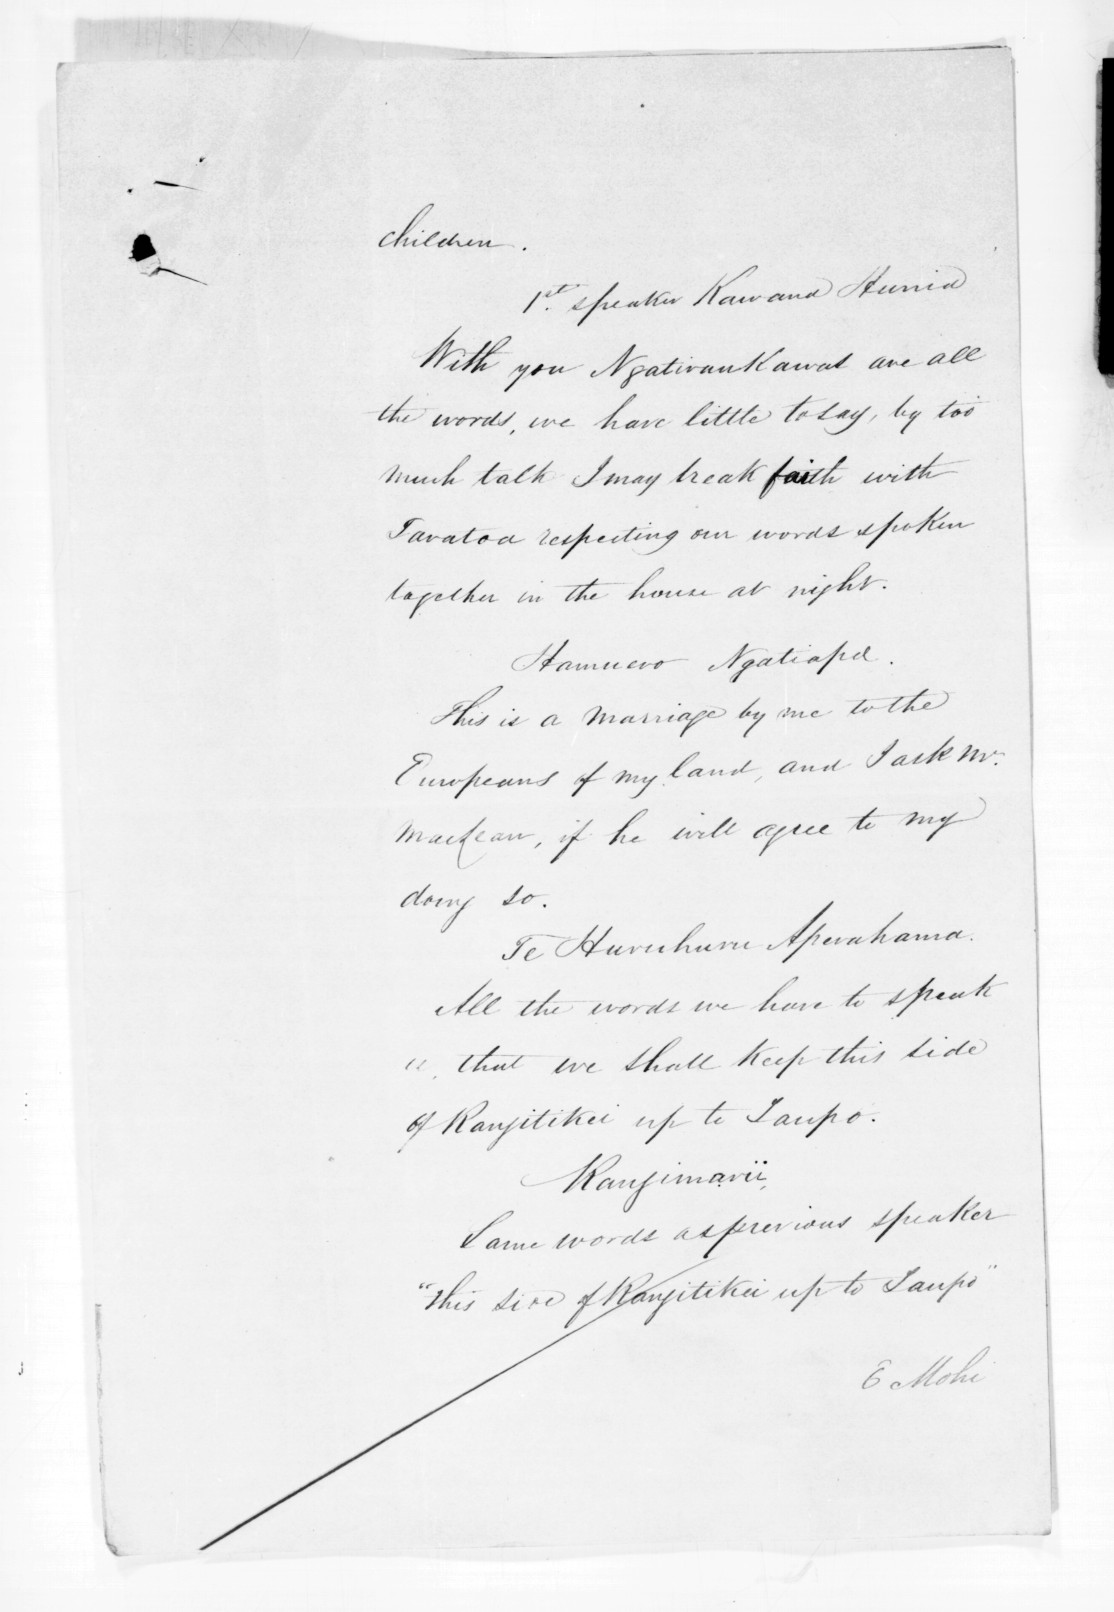 children.
1st. speaker Kawana Hunia
With you Ngatiraukawas are all
the words, we have little to say, by too
much talk I may break faith with
Taratoa respecting our words spoken
together in the house at night.
Hamuera Ngatiapa.
This is a marriage by me to the
Europeans of my land, and I ask Mr.
MacLean, if he will agree to my
doing so.
Te Huruhuru Aperahama.
All the words we have to speak
is, that we shall keep this side
of Rangitikei up to Taupo.
Rangimarii,
Same words as previous speaker
"this side of Rangitikei up to Taupo"
E Mohi